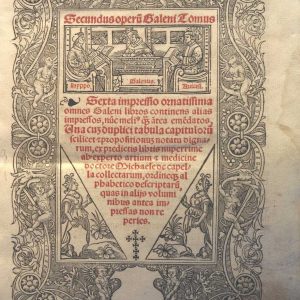 Secundus operū Galeni Tomus
Hyppo. Galenus. Auicen.
Sexta impressio ornatissima
omnes Galeni libros continens alias
impressos, nūc meliꝰ q̄ antea emēdatos.
Una cuʒ duplici tabula capitulorū
scilicet ⁊ propositionuʒ notatu dignarum,
ex predictis libris nuperrime
ab experto artium ⁊ medicine
doctore Michaele de capella
collectarum, ordineqʒ alphabetico
descriptarū,
quas in alijs voluminibus
antea impressas
non reperies.